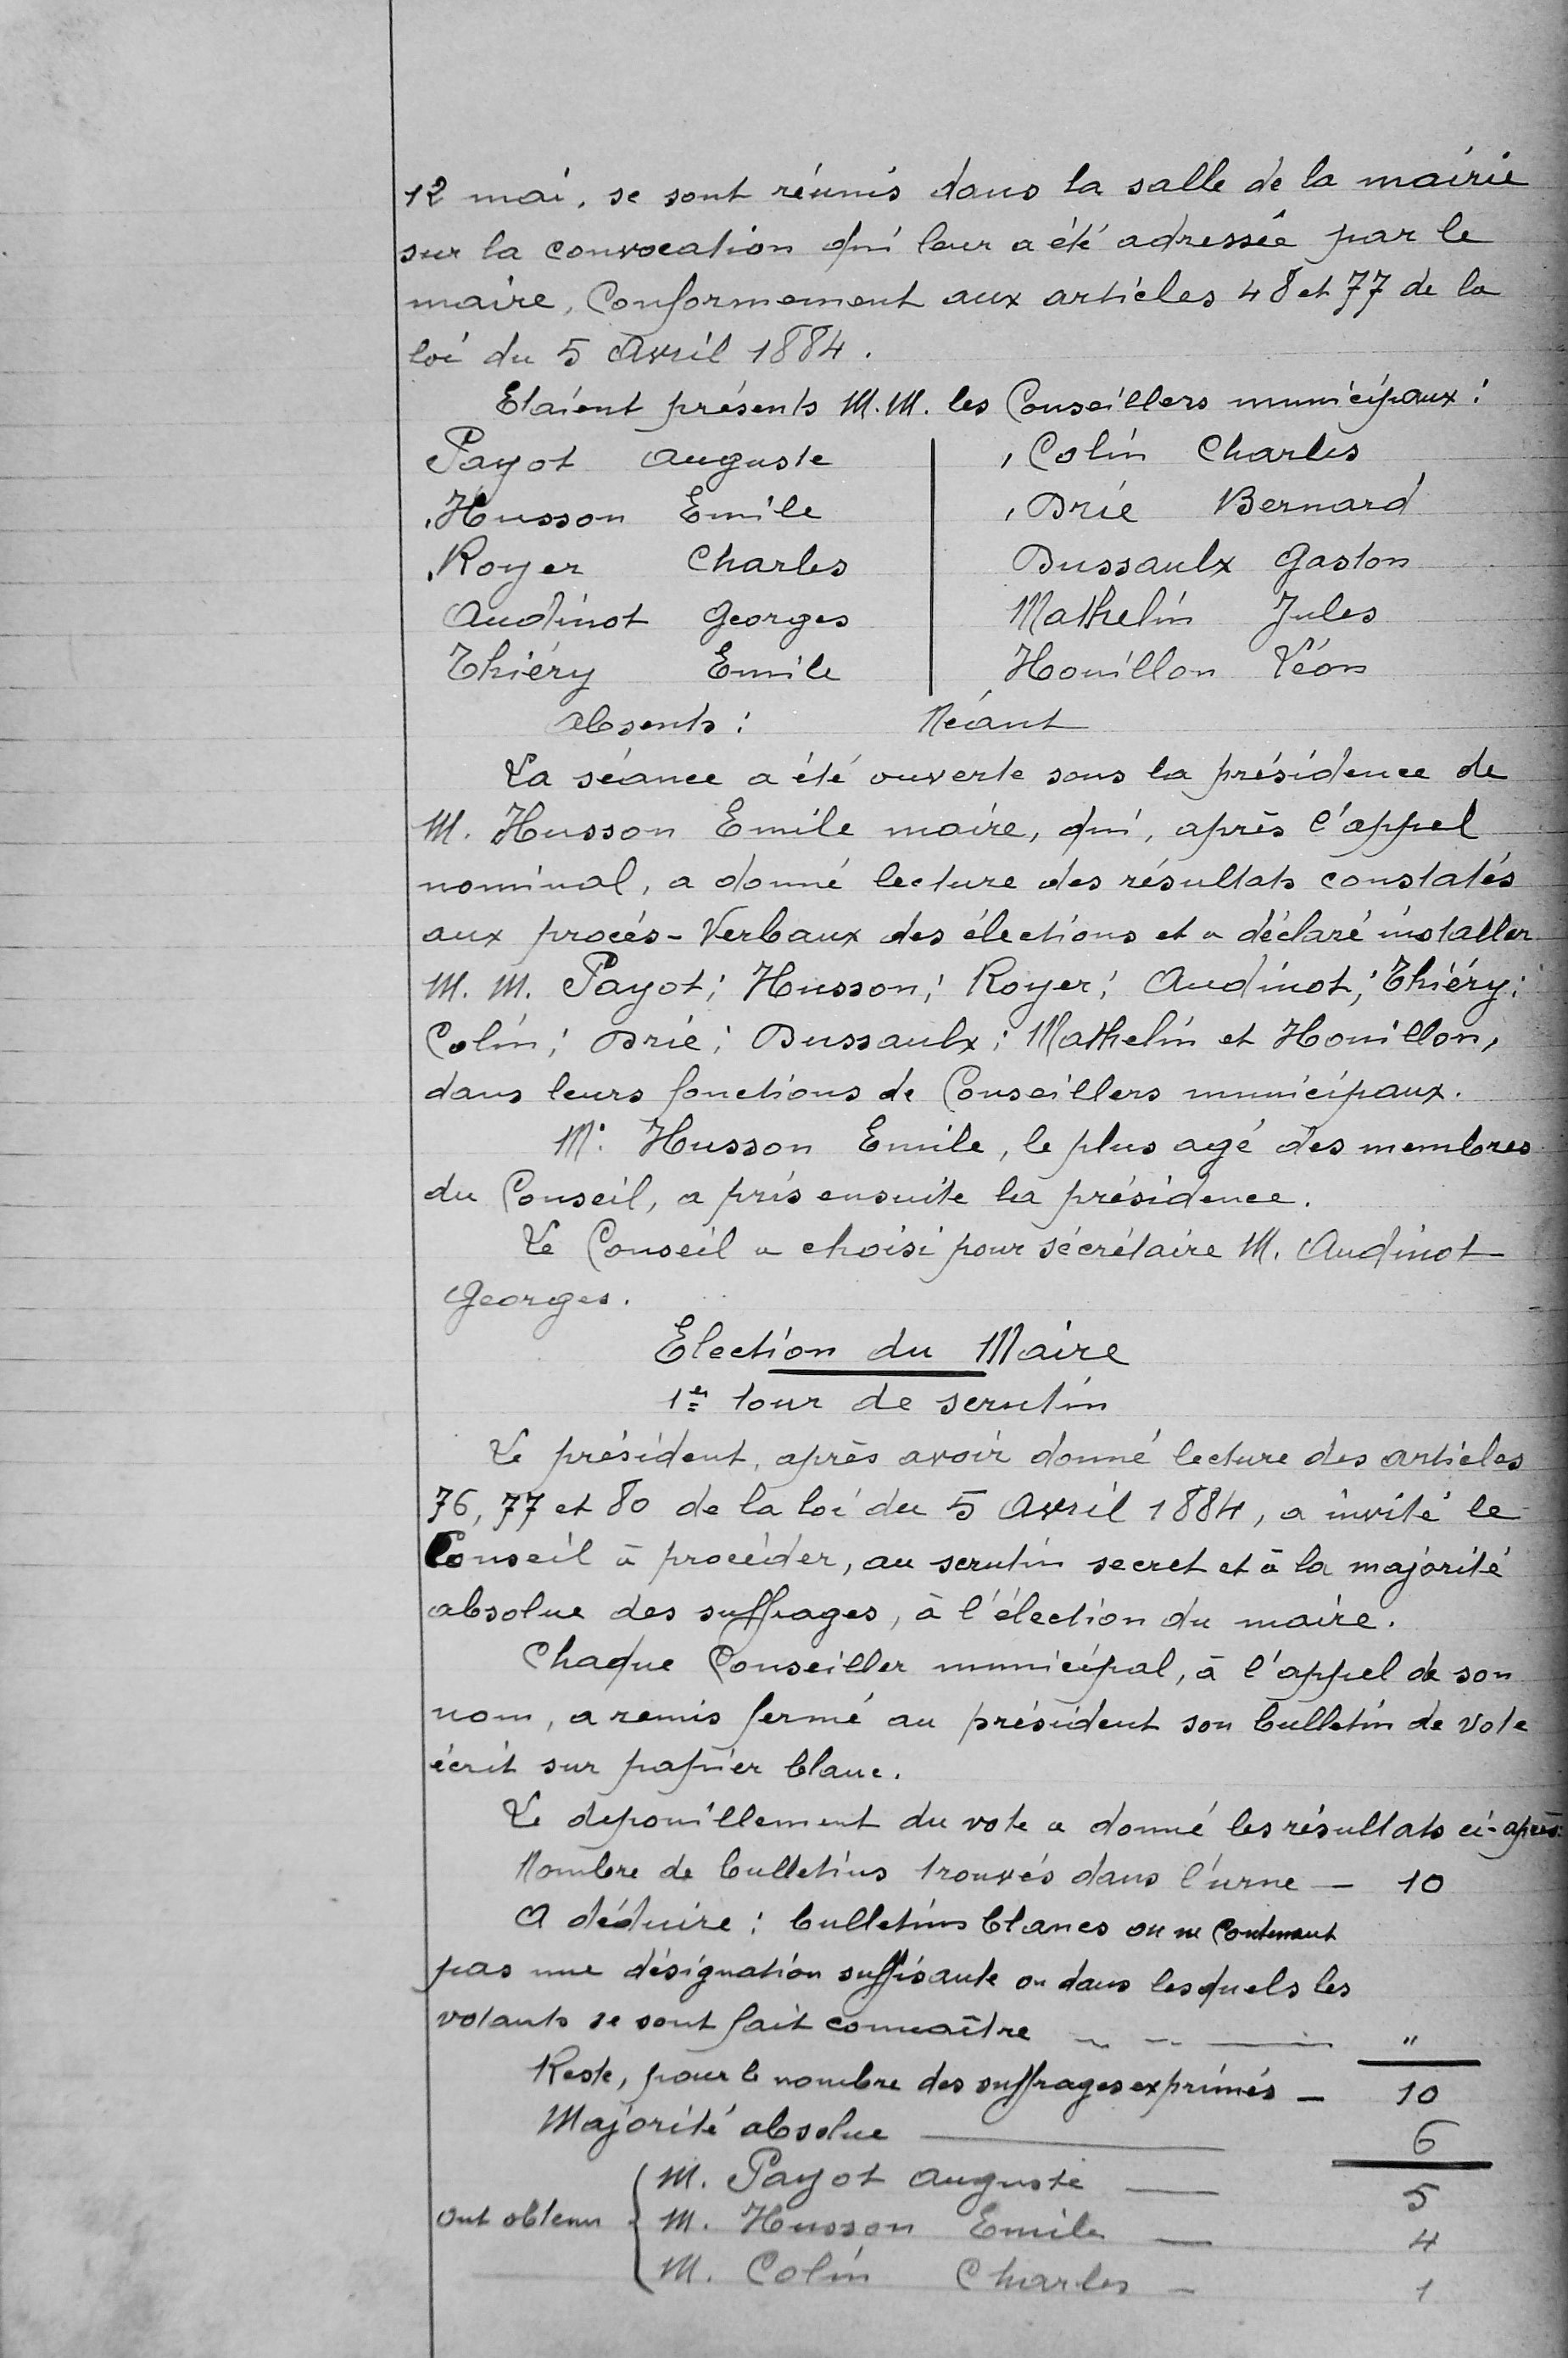 12 mai, se sont réunis dans la salle de la mairie
sur la convocation qui leur a été adressée par le
maire, Conformement aux articles 48 et 77 de la
loi du 5 Avril 1884.
Etaient présents M.M. les Conseillers municipaux :
Payot Auguste
Husson Emile
Royer Charles
Audinot Georges
Thiéry Emile
Colin Charles
Drié Bernard
Dussaulx Gaston
Mathelin Jules
Houillon Léon
Absents : Néant
La séance a été ouverte sous la présidence de
M. Husson Emile maire, qui, après l'appel
nominal, a donné lecture des résultats constatés
aux procès-Verbaux des élections et a déclaré installer
M. M. Payot; Husson; Royer; Audinot; Thiéry;
Colin; Drié; Dussaulx; Mathelin et Houillon,
dans leurs fonctions de Conseillers municipaux.
M. Husson Emile, le plus agé des membres
du Conseil, a pris ensuite la présidence.
Le Conseil a choisi pour sécrétaire M. Audinot
Georges.
Election du Maire
1er tour de scrutin
Le président, après avoir donné lecture des articles
76, 77 et 80 de la loi du 5 Avril 1884, a invité le
Conseil à procéder, au scrutin secret et à la majorité
absolue des suffrages, à l'élection du maire.
Chaque Conseiller municipal, à l'appel de son
nom, a remis fermé au président son bulletin de vote
écrit sur papier blanc.
Le depouillement du vote a donné les résultats ci-après:
Nombre de bulletins trouvés dans l'urne — 10
A déduire : bulletins blancs ou ne Contenant
pas une désignation suffisante ou dans lesquels les
votants se sont fait connaître — — — "
Reste, pour le nombre des suffrages exprimés — 10
Majorité absolue — 6
Ont obtenu { M. Payot Auguste — 5
M. Husson Emile — 4
M. Colin Charles — 1